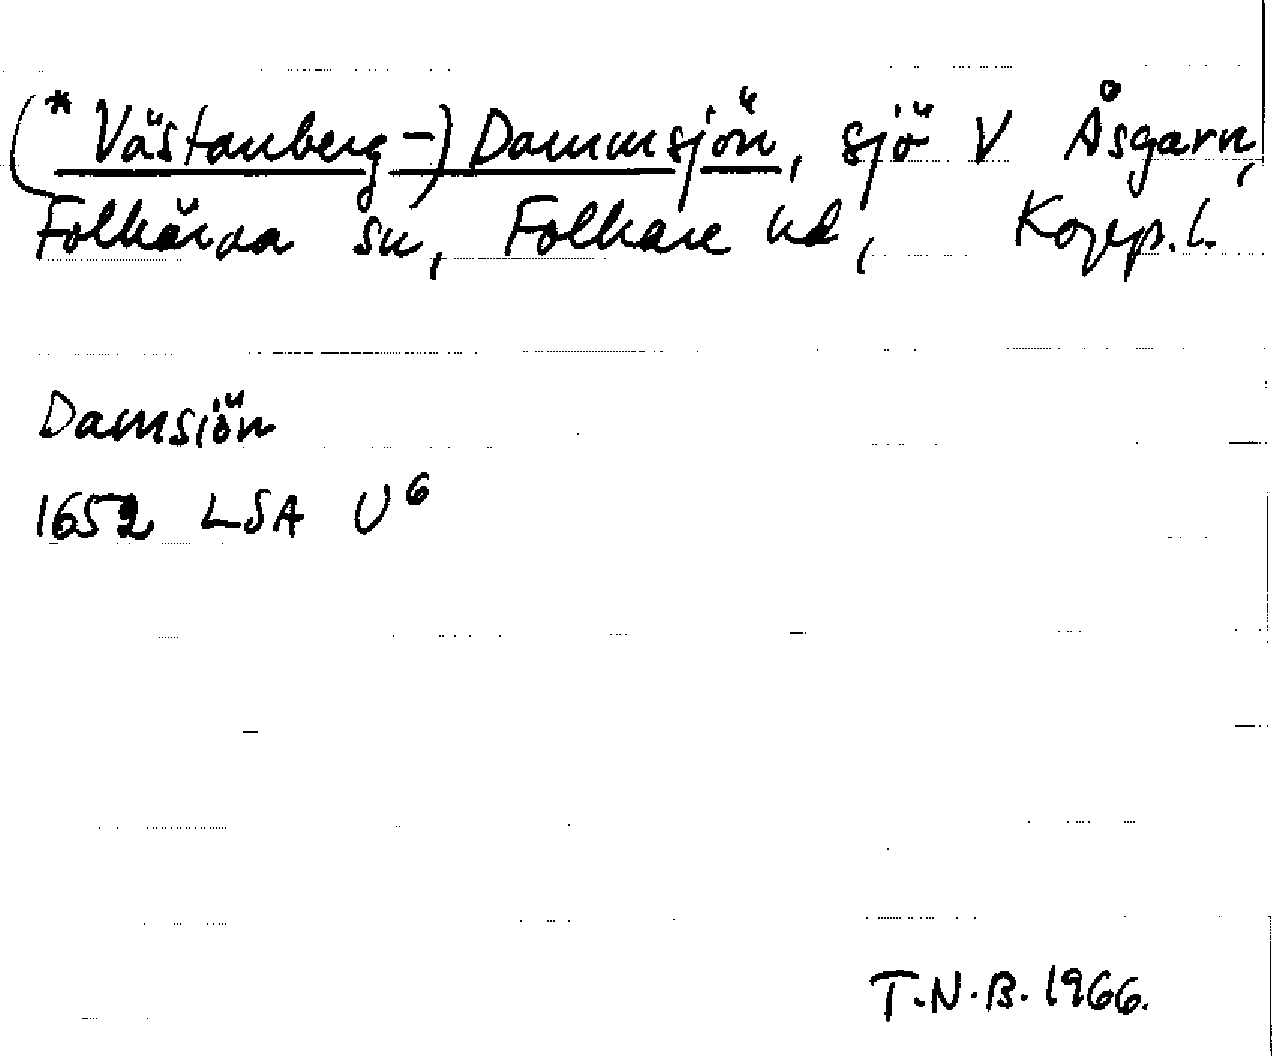 (*Västanberg-)Dammsjön, sjö V Åsgarn,
Folkärna sn, Folkare hd, Kopp.l.
Damsiön
1652 LSA U6
T.N.B. 1966.